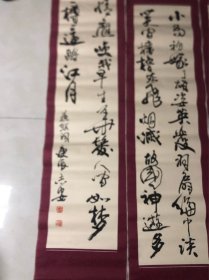 小喬初嫁了雄姿英发羽扇纶巾谈
笑间樯橹灰飛烟滅故國神遊多
情應笑我早生华发人间如梦
一樽還酹江月